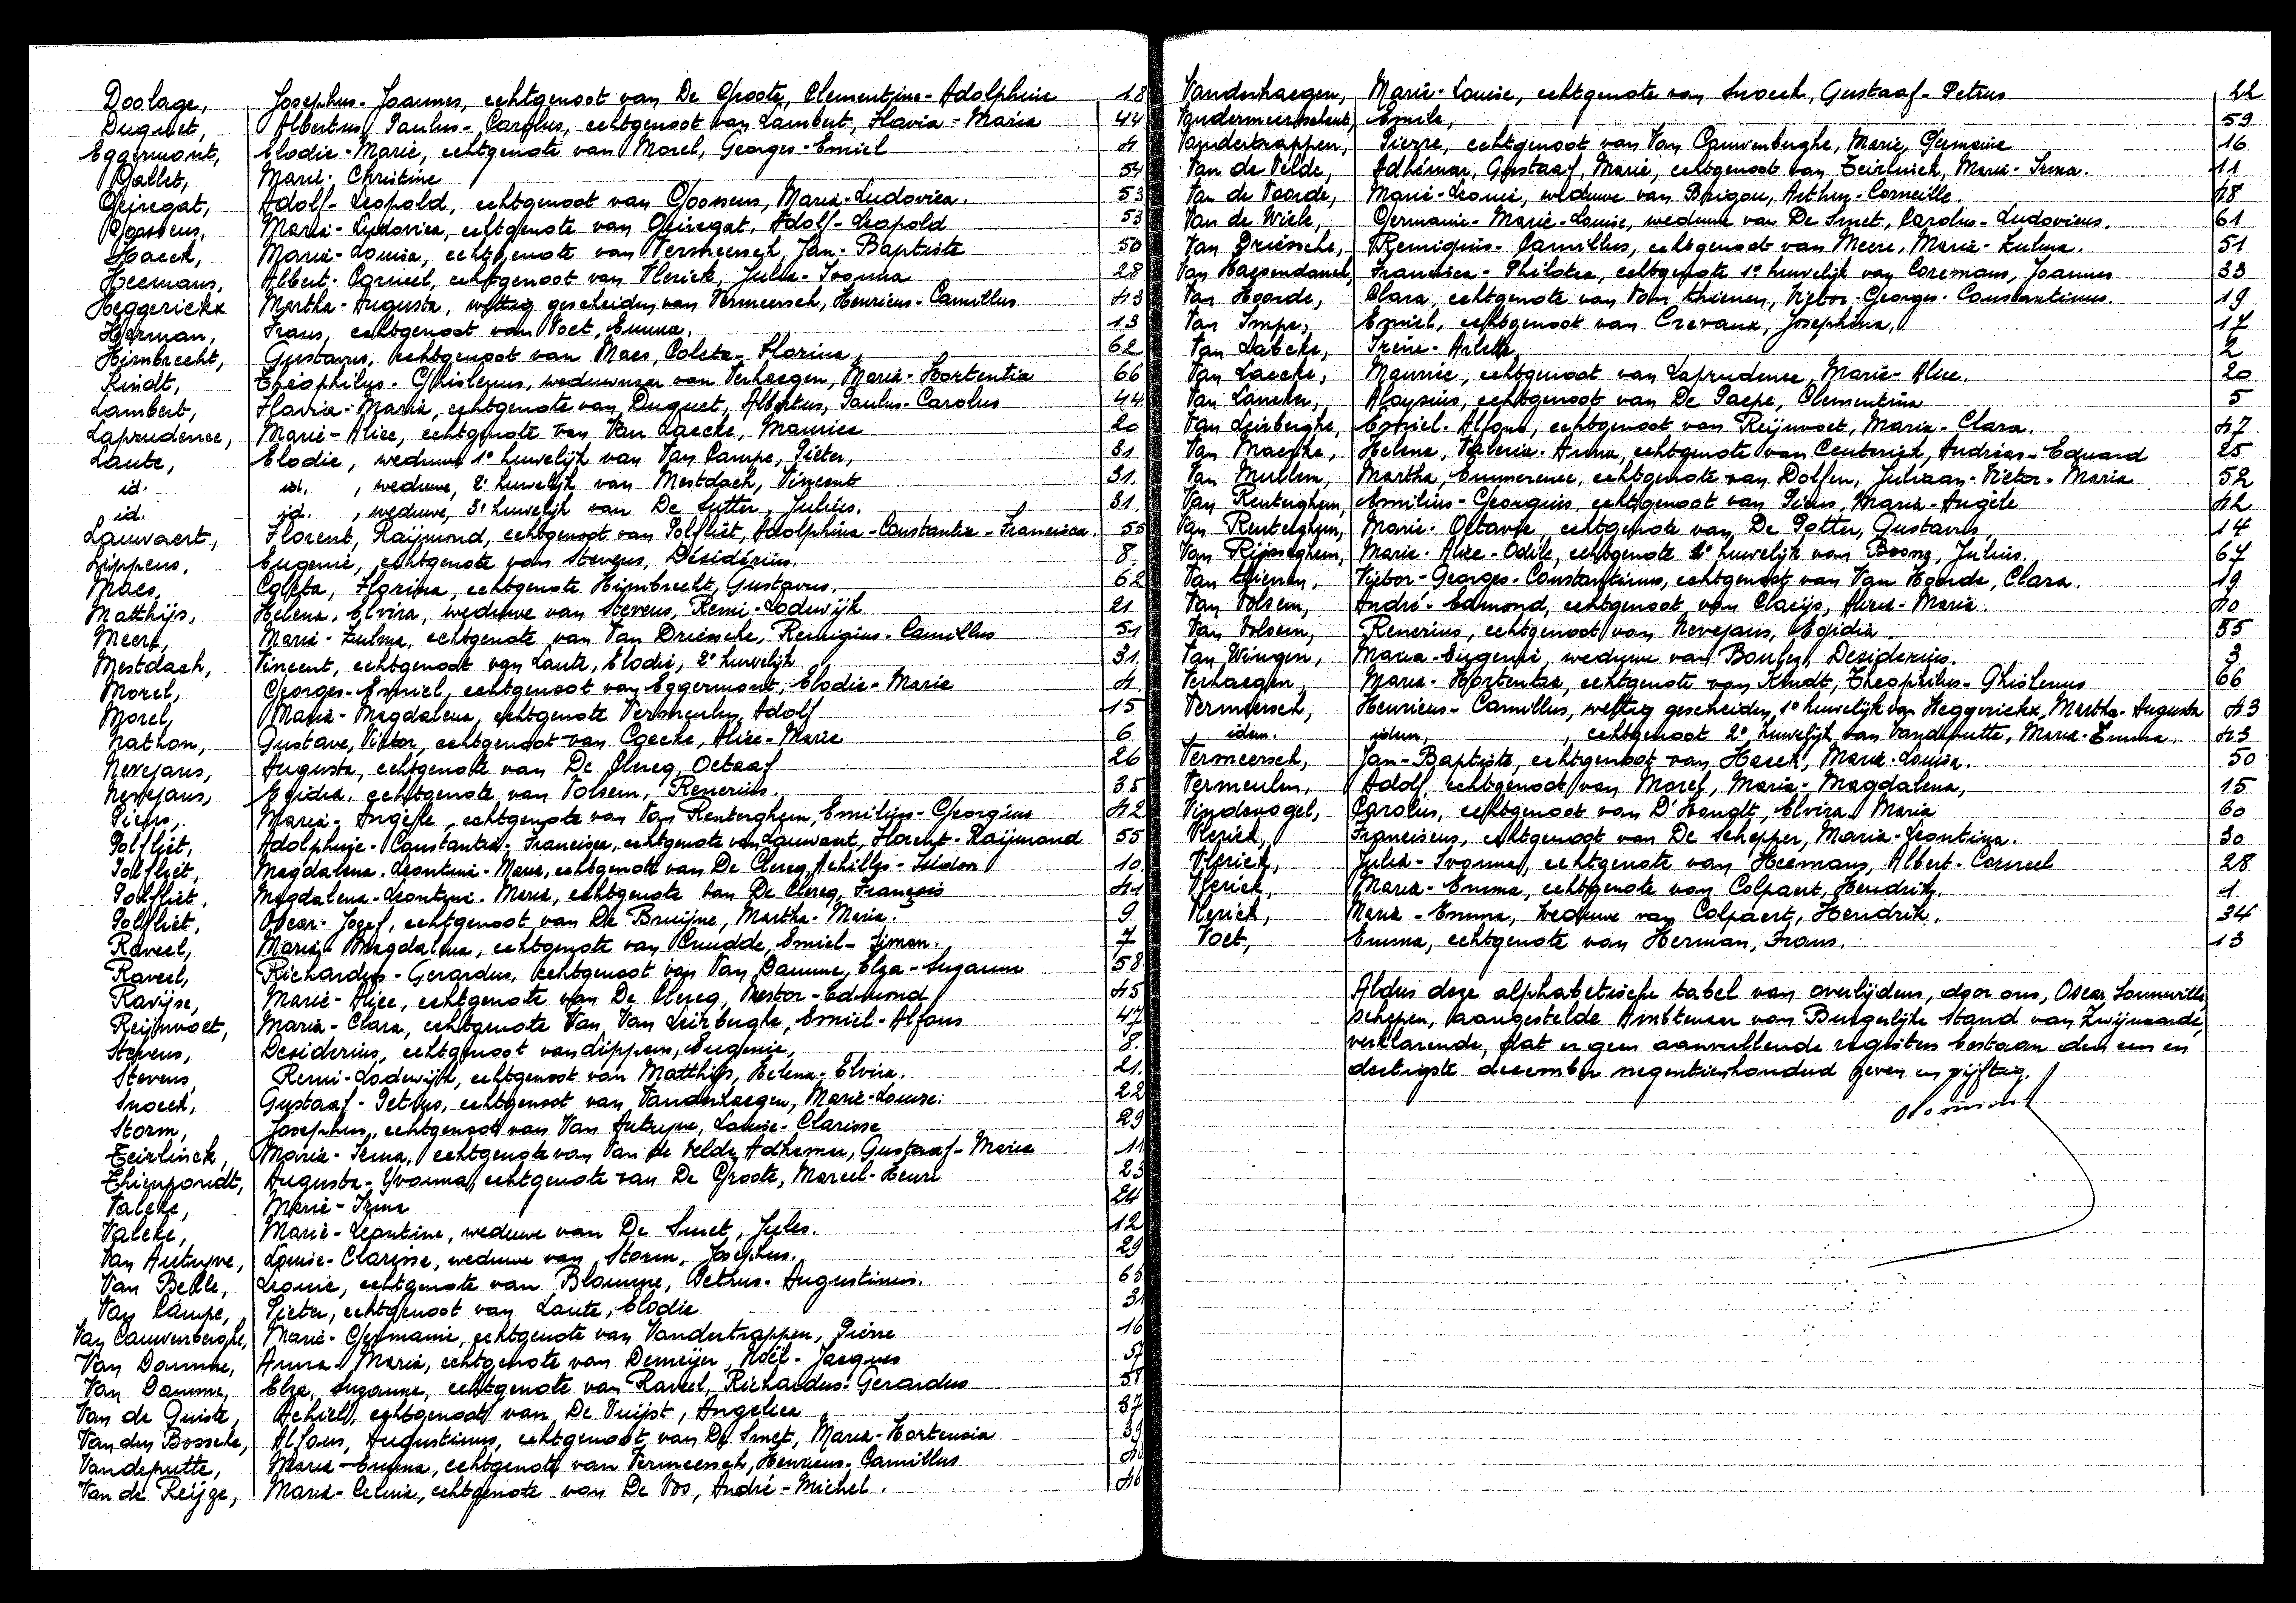 Doolage, Josephus-Joannes, echtgenoot van De Groote, Clementine-Adolphine 18
Duquet, Albertus, Paulus-Carolus, echtgenoot van Lambert, Flavia-Maria 44
Eggermont, Elodie-Marie, echtgenote van Morel, Georges-Emiel 4
Gallet, Marie-Christine 54
Geiregat, Adolf-Leopold, echtgenoot van Goossens, Maria-Ludovica. 53
Goossens, Maria-Ludovica, echtgenote van Geiregat, Adolf-Leopold 53
Haeck, Maria-Louisa, echtgenote van Vermeersch, Jan-Baptiste 50
Heemans, Albert-Corneel, echtgenoot van Vlerick, Julia-Ivonna 28
Heggerickx Martha-Augusta, wettig gescheiden van Vermeersch, Henricus-Camillus 43
Herman, Frans, echtgenoot van Voet, Emma. 13
Himbrecht, Gustavus, echtgenoot van Maes, Coleta-Florina, 62
Kindt, Théophilus-Ghislenus, weduwnaar van Verhaegen, Maria-Hortentia 66
Lambert, Flavia-Maria, echtgenote van Duquet, Albertus, Paulus-Carolus 44
Laprudence, Marie-Alice, echtgenote van Van Laecke, Maurice 20
Laute, Elodie, weduwe 1e huwelijk van Van Campe, Pieter, 31
id. id. , weduwe, 2e huwelijk van Mestdach, Vincent 31.
id. id. , weduwe, 3e huwelijk van De Sutter, Julius. 31
Lauwaert, Florent, Raijmond, echtgenoot van Polfliet, Adolphina-Constantia-Francisca. 55
Lippens, Eugenie, echtgenote van Stevens, Désidérius. 8
Maes, Coleta, Florina, echtgenote Himbrecht, Gustavus. 62
Matthijs, Helena, Elvira, weduwe van Stevens, Remi-Lodewijk 21
Meert, Maria-Zulma, echtgenote van Van Driessche, Remigius-Camillus 51
Mestdach, Vincent, echtgenoot van Laute, Elodie, 2e huwelijk 31.
Morel, Georges-Emiel, echtgenoot van Eggermont, Elodie-Marie 4.
Morel, Maria-Magdalena, echtgenote Vermeulen, Adolf 15
Nathan, Gustave, Victor, echtgenoot van Caecke, Alice-Marie 6
Nevejans, Augusta, echtgenote van De Clercq, Octaaf 26
Nevejans, Egidia, echtgenote van Volsem, Renerius. 35
Piens, Maria-Angèle, echtgenote van Van Renterghem, Emilius-Georgius 42
Polfliet, Adolphine-Constantia-Francisca, echtgenote van Lauwaert, Florent-Raijmond 55
Polfliet, Magdalena-Leontine-Maria, echtgenote van De Clercq, Achilles-Isidoor 10.
Polfliet, Magdalena-Leontine-Maria, echtgenote van De Clercq, François 41
Polfliet, Oscar-Jozef, echtgenoot van De Bruijne, Martha-Maria. 9
Raveel, Maria-Magdalena, echtgenote van Cnudde, Emiel-Simon. 7
Raveel, Richardus-Gerardus, echtgenoot van Van Damme, Elza-Suzanne 58
Ravijse, Marie-Alice, echtgenote van De Clercq, Nestor-Edmond 45
Reijnvoet, Maria-Clara, echtgenote Van Van Leirberghe, Emiel-Alfons 47
Stevens, Desiderius, echtgenoot van Lippens, Eugenie, 8.
Stevens, Remi-Lodewijk, echtgenoot van Matthijs, Helena-Elvira. 21.
Snoeck, Gustaaf-Petrus, echtgenoot van Vanderhaegen, Marie-Louise. 22
Storm, Josephus, echtgenoot van Van Autryve, Louise-Clarisse 29
Teirlinck, Maria-Irma, echtgenote van Van de Velde, Adhemar, Gustaaf-Marie 11
Thienpondt, Augusta-Yvonna, echtgenote van De Groote, Marcel-Henri 23
Valcke, Marie-Irma 24
Valcke, Marie-Leontine, weduwe van De Smet, Jules. 12
Van Autryve, Louise-Clarisse, weduwe van Storm, Josephus. 29
Van Belle, Leonie, echtgenote van Blomme, Petrus-Augustinus. 65
Van Campe, Pieter, echtgenoot van Laute, Elodie 31
Van Cauwenberghe, Marie-Germaine, echtgenote van Vandertrappen, Pierre 16
Van Damme, Anna-Maria, echtgenote van Demeijer, Noël-Jacques 57
Van Damme, Elza, Suzanne, echtgenote van Raveel, Richardus-Gerardus 58
Van de Guiste, Achiel, echtgenoot van De Vuijst, Angelica 37
Van den Bossche, Alfons, Augustinus, echtgenoot van De Smet, Maria-Hortensia 39
Vandeputte, Maria-Emma, echtgenote van Vermeersch, Henricus-Camillus
Van de Reijze, Maria-Celina, echtgenote van De Vos, André-Michel. 46
Vanderhaegen, Marie-Louise, echtgenote van Snoeck, Gustaaf-Petrus 22
Emile, 59
Vandertrappen, Pierre, echtgenoot van Van Cauwenberghe, Marie, Germaine 16
Van de Velde, Adhémar, Gustaaf, Marie, echtgenoot van Teirlinck, Maria-Irma. 11
Van de Voorde, Marie-Leonie, weduwe van Brigou, Arthur-Corneille. 48
Van de Wiele, Germaine-Marie-Louise, weduwe van De Smet, Carolus-Ludovicus. 61
Van Driessche, Remigius-Camillus, echtgenoot van Meert, Maria-Zulma. 51
Van Haesendonck, Francisca-Philotea, echtgenote 1e huwelijk van Coremans, Joannes 33
Van Hoorde, Clara, echtgenote van Van Thienen, Victor-Georges-Constantinus. 19
Van Impe, Emiel, echtgenoot van Crevaux, Josephina, 17
Van Labeke, Irène-Arlette, 2
Van Laecke, Maurice, echtgenoot van Laprudence, Marie-Alice. 20
Van Lancker, Aloysius, echtgenoot van De Paepe, Clementina 5
Van Leirberghe, Emiel-Alfons, echtgenoot van Reijnvoet, Maria-Clara. 47
Van Maesche, Helena, Valeria-Anna, echtgenote van Ceuterick, Andreas-Eduard 25
Van Mullem, Martha, Emmerence, echtgenote van Dolfen, Juliaan-Victor-Maria 52
Van Renterghem, Emilius-Georgius, echtgenoot van Piens, Maria-Angèle 42
Van Renterghem, Marie-Octavie, echtgenote van De Potter, Gustavus 14
Van Rijsseghem, Maria-Alice-Odile, echtgenote 2e huwelijk van Boone, Julius. 67
Van Thienen, Victor-Georges-Constantinus, echtgenoot van Van Hoorde, Clara. 19
Van Volsem, André-Edmond, echtgenoot van Claeijs, Alice-Maria. 40
Van Volsem, Renerius, echtgenoot van Nevejans, Egidia 35
Van Wingen, Maria-Eugenie, weduwe van Desiderius. 3
Verhaegen, Maria-Hortentia, echtgenote van Kindt, Theophilus-Ghislenus 66
Vermeersch, Henricus-Camillus, wettig gescheiden, 1e huwelijk van Heggerickx, Martha-Augusta 43
idem. idem, , echtgenoot 2e huwelijk van Vandeputte, Maria-Emma. 43
Vermeersch, Jan-Baptiste, echtgenoot van Haeck, Maria-Louisa. 50
Vermeulen, Adolf, echtgenoot van Morel, Maria-Magdalena, 15
Vindevogel, Carolus, echtgenoot van D'Hondt, Elvira Maria 60
Vlerick, Franciscus, echtgenoot van De Schepper, Maria-Leontina. 30
Vlerick, Julia-Ivonna, echtgenote van Heemans, Albert-Corneel 28
Vlerick, Maria-Emma, echtgenote van Colpaert, Hendrik. 1
Vlerick, Maria-Emma, Weduwe van Colpaert, Hendrik. 34
Voet, Emma, echtgenote van Herman, Frans. 13
Aldus deze alphabetische tabel van overlijdens, door ons, Oscar Sonneville,
schepen, aangestelde Ambtenaar van Burgerlijke Stand van Zwijnaarde,
verklarende, dat er geen aanvullende registers bestaan den een en
dertigste december negentienhonderd zeven en vijftig.